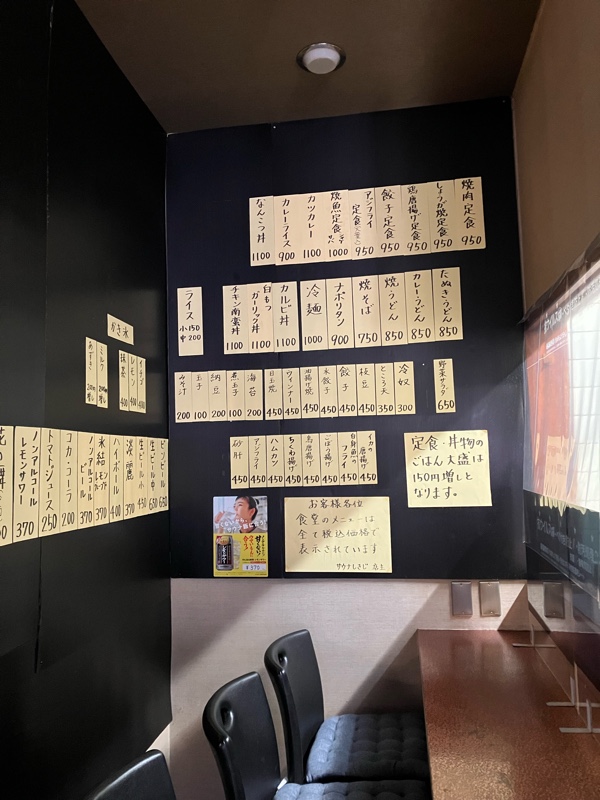 焼肉定食 950
しょうが焼定食 950
鶏唐揚げ定食 950
餃子定食 950
アジフライ定食 950
焼魚定食 1000
カツカレー 1100
カレーライス 900
なんこつ丼 1100
たぬきうどん 850
カレーうどん 850
焼うどん 850
焼そば 750
ナポリタン 900
冷麺 1000
カルビ丼 1100
白もつガーリック丼 1100
チキン南蛮丼 1100
ライス 小150 中200
野菜サラダ 650
冷奴 300
ところ天 350
枝豆 450
餃子 450
水餃子 450
ウィンナー 450
目玉焼 450
海苔 200
煮玉子 100
納豆 200
玉子 100
みそ汁 200
イカの唐揚げ 450
白身魚のフライ 450
ごぼう揚げ 450
鳥唐揚げ 450
ちくわ揚げ 450
ハムカツ 450
アジフライ 450
砂肝 450
定食・丼物の
ごはん大盛は
150円増しと
なります。
お客様各位
食堂のメニューは
全て税込価格で
表示されています
サウナしきじ
¥370
かき氷
イチゴ 400
レモン 400
抹茶 400
ミルク
あずき
ビンビール 650
生ビール中 630
生ビール小 430
淡麗 370
ハイボール 400
氷結レモン 370
ノンアルコールビール 370
コカ・コーラ 200
トマトジュース 250
ノンアルコールレモンサワー 370